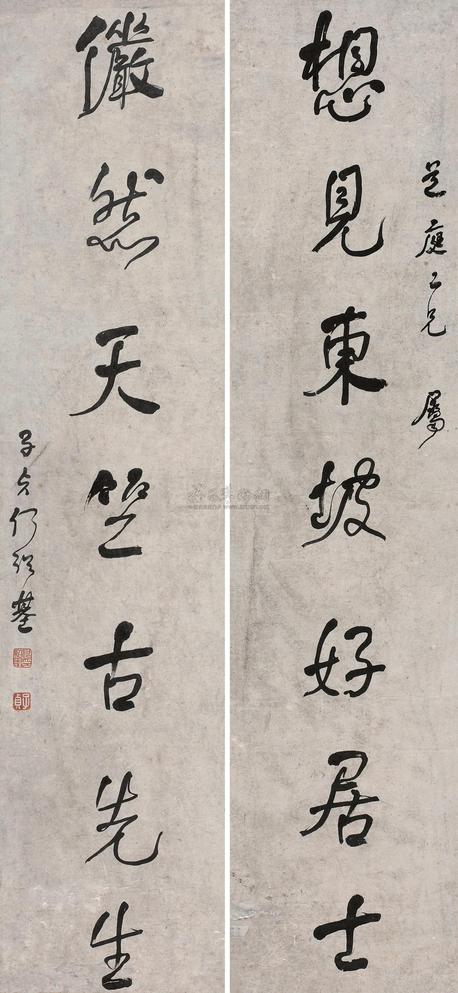 芝庭二兄 屬
想見東坡好居士
儼然天竺古先生
子貞何紹基